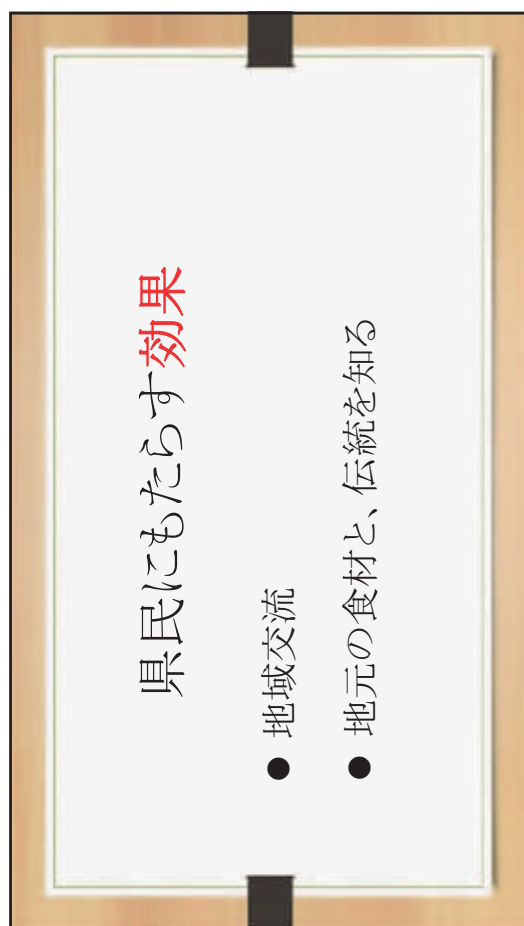 県民にもたらす効果
● 地域交流
● 地元の食材と、伝統を知る